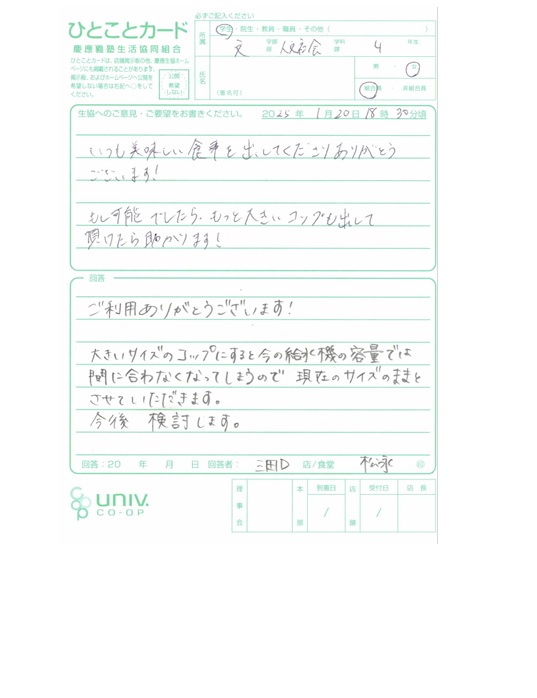 必ずご記入ください
ひとことカード
慶應義塾生活協同組合
ひとことカードは、店掲示板の他、慶應生協ホーム
ページにも掲載されることがあります。
掲示板、およびホームページへ公開を
希望しない場合は右記へ○をして
ください。
公開
希望
しない
所属
学生・院生・教員・職員・その他( )
文 学部 人文社会 学科 4 年生
研 課
氏名
(匿名可)
男・女
組合員・非組合員
生協へのご意見・ご要望をお書きください。 2025年 1月20日18時30分頃
いつも美味しい食事を出してくださりありがとう
ございます!
もし可能でしたら、もっと大きいコップも出して
頂けたら助かります!
回答
ご利用ありがとうございます!
大きいサイズのコップにすると今の給水機の容量では
間に合わなくなってしまうので 現在のサイズのままと
させていただきます。
今後 検討します。
回答:20 年 月 日 回答者: 三田D 店/食堂 松永 ㊞
UNIV.
CO-OP
理事会
本部
到着日
/
店舗
受付日
/
店長